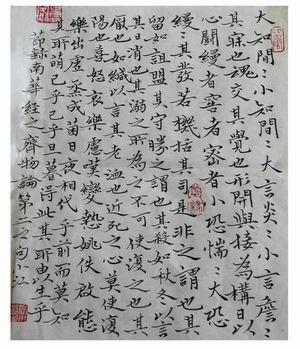 大知閒〻小知間〻大言炎〻小言詹〻
其寐也魂交其覺也形開與接為構日以
心鬪縵者窖者密者小恐惴〻大恐
縵〻其發若機栝其司是非之謂也其
留如詛盟其守勝之謂也其殺如秋冬以言
其日消也其溺之所為之不可使復之也其
厭也如緘以言其老洫也近死之心莫使復
陽也喜怒哀樂慮嘆變慹姚佚啟態
樂出虛蒸成菌日夜相代乎前而莫知
其所萌已乎已乎旦暮得此其所由以生乎
節錄南華經之齊物論第二之句小江